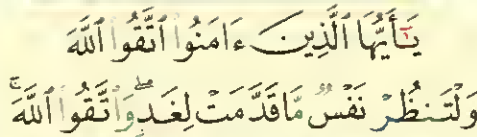 يَٰٓأَيُّهَا ٱلَّذِينَ ءَامَنُوا۟ ٱتَّقُوا۟ ٱللَّهَ
وَلْتَنظُرْ نَفْسٌ مَّا قَدَّمَتْ لِغَدٍۖ وَٱتَّقُوا۟ ٱللَّهَۚ